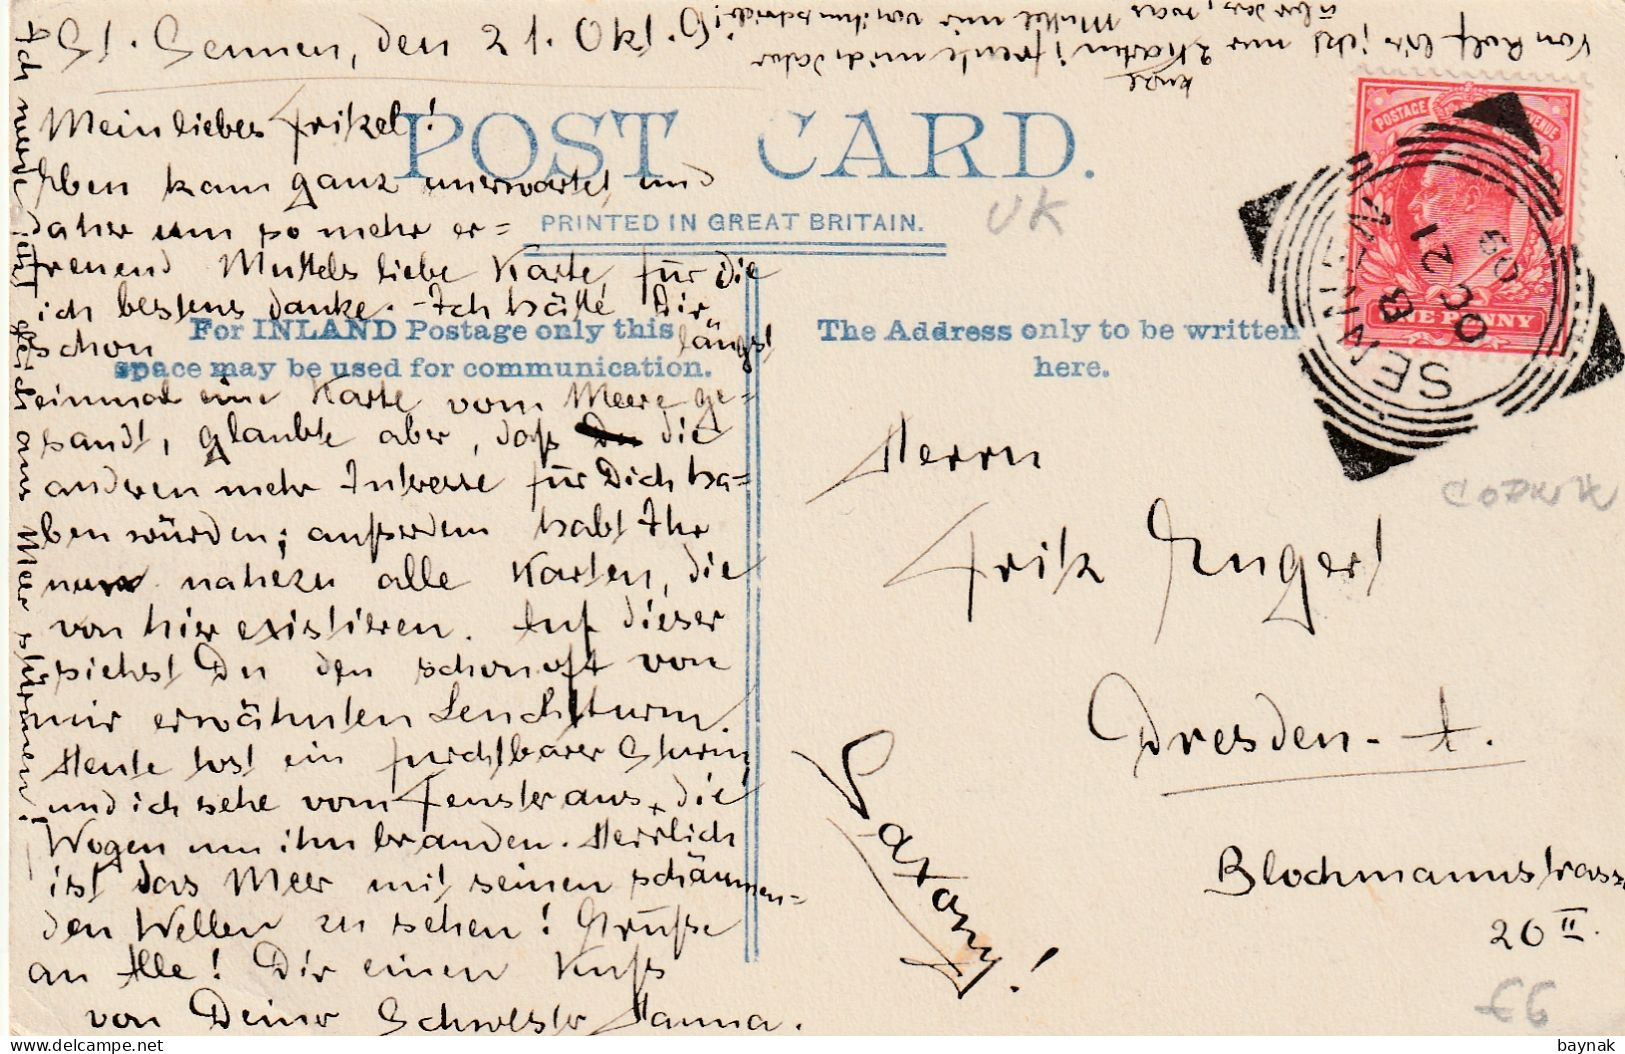 St. Sennen, den 21. Okt. 09.
Mein liebes Fritzel!
Eben kam ganz unerwartet und
daher um so mehr er=
freuend Muttels liebe Karte, für die
ich bestens danke. - Ich hätte Dir
schon längst
einmal eine Karte vom Meere ge=
sandt, glaubte aber, daß die
anderen mehr Interesse für Dich ha=
ben würden; außerdem habt Ihr
nun nahezu alle Karten, die
von hier existieren. Auf dieser
siehst Du den schon oft von
mir erwähnten Leuchtturm.
Heute tost ein furchtbarer Sturm,
und ich sehe vom Fenster aus, die
Wogen um ihn branden. Herrlich
ist das Meer mit seinen schäumen=
den Wellen zu sehen! Grüße
an Alle! Dir einen Kuß
von Deiner Schwester Hanna.
Ich werde jetzt gleich ans Meer stürmen!
Von Rolf bis jetzt nur 2 kurze Karten; freute mich daher
über das, was Muttel mir von ihm schrieb!
POST CARD.
PRINTED IN GREAT BRITAIN.
For INLAND Postage only this
space may be used for communication.
The Address only to be written
here.
UK
POSTAGE REVENUE
ONE PENNY
SENNEN
B
OC 21
09
Herrn
Fritz Engert
Dresden-A.
Blochmannstrasse
20 II.
Saxony!
£6
baynak